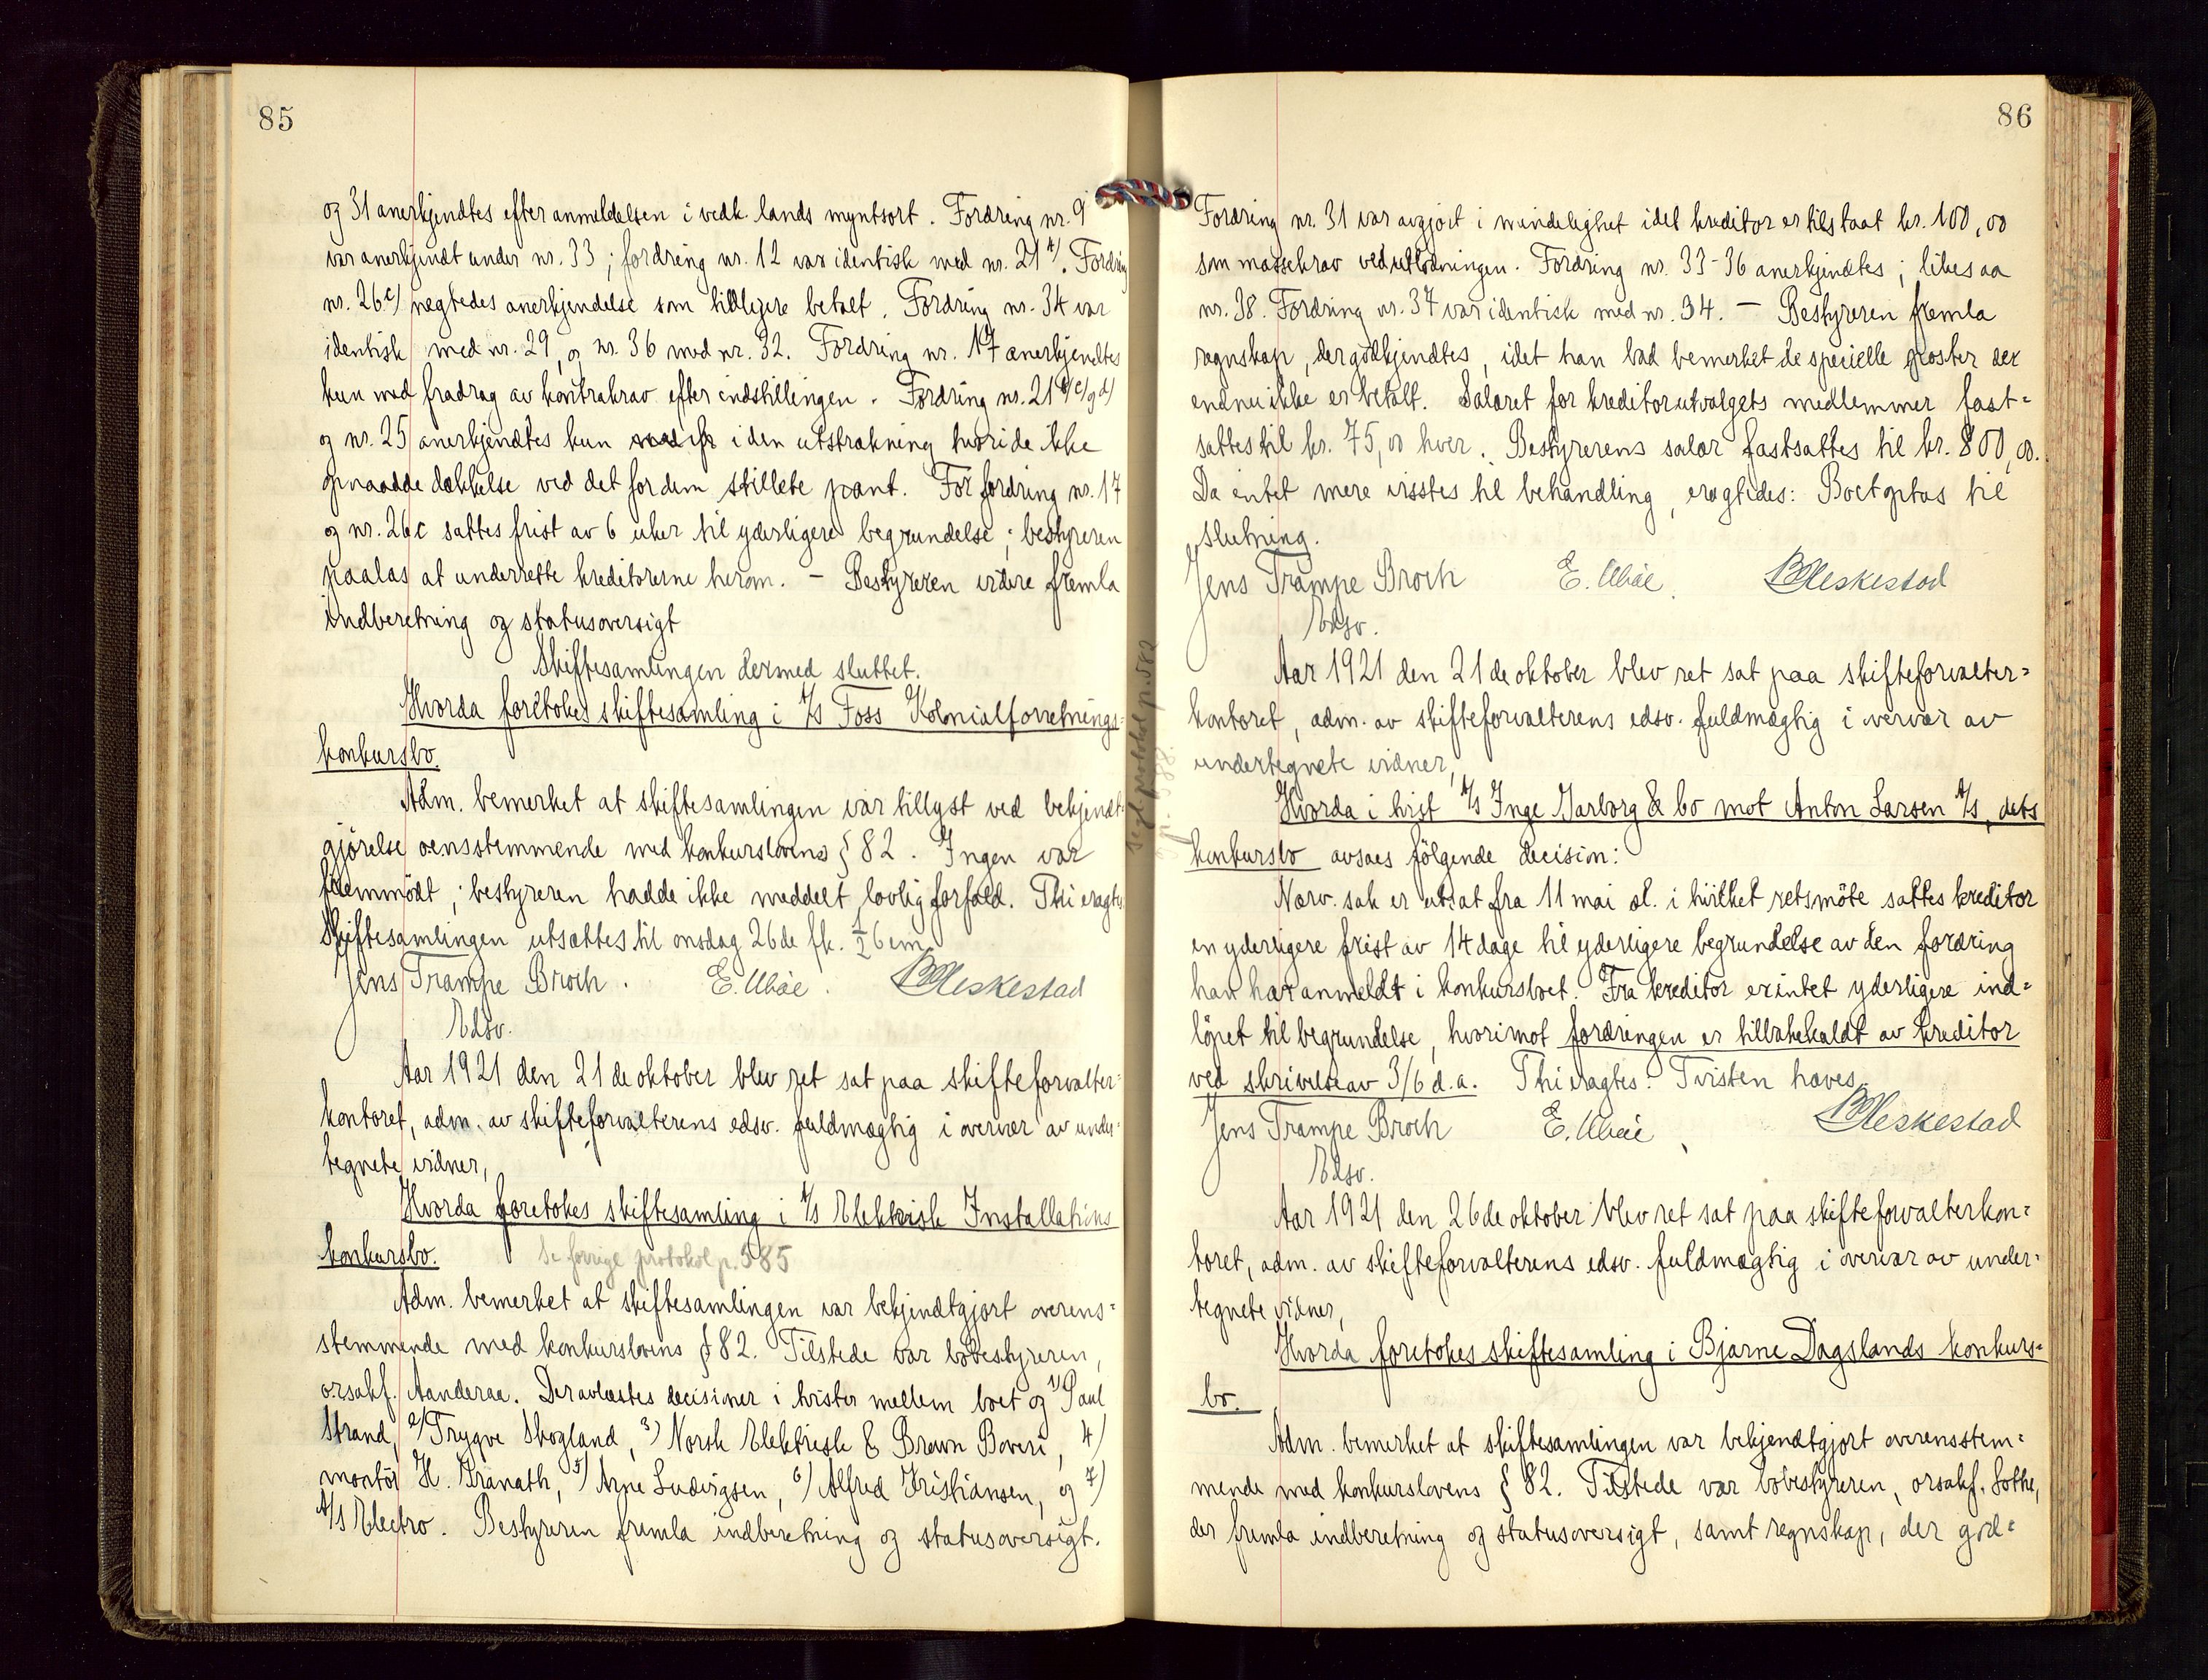 85
og 31 anerkjendtes efter anmeldelsen i vedk. lands myntsort. Fordring nr. 9
var anerkjendt under nr. 33; fordring nr. 12 var identisk med nr. 21 a). Fordring
nr. 26 c) nægtedes anerkjendelse som tidligere betalt. Fordring nr. 34 var
identisk med nr. 29, og nr. 36 med nr. 32. Fordring nr. 17 anerkjendtes
kun med fradrag av kontrakrav efter indstillingen. Fordring nr. 21 b) c) og d)
og nr. 25 anerkjendtes kun i den utstrækning hvori de ikke
opnaadde dækkelse ved det for dem stillete pant. For fordring nr. 17
og nr. 26 c sattes frist av 6 uker til yderligere begrundelse; bestyreren
paalas at underrette kreditorerne herom. – Bestyreren videre fremla
indberetning og statusoversigt
Skiftesamlingen dermed sluttet.
Hvorda foretokes skiftesamling i A/S Foss Kolonialforretnings
konkursbo.
Adm. bemerket at skiftesamlingen var tillyst ved bekjendt-
gjørelse overensstemmende med konkurslovens § 82. Ingen var
fremmødt; bestyreren hadde ikke meddelt lovlig forfald. Thi eragtes
Skiftesamlingen utsættes til onsdag 26de ds. kl. ½ 6 em.
Jens Trampe Broch. E. Ubøe. B Heskestad
Edsv.
Aar 1921 den 21de oktober blev ret sat paa skifteforvalter-
kontoret, adm. av skifteforvalterens edsv. fuldmægtig i overvær av under-
tegnete vidner,
Hvorda foretokes skiftesamling i A/S Elektrisk Installations
konkursbo. Se forrige protokol p. 585
Adm. bemerket at skiftesamlingen var bekjendtgjort overens-
stemmende med konkurslovens § 82. Tilstede var bobestyreren,
o.r.sakf. Aanderaa. Der avlæstes decisioner i tvister mellem boet og 1) Paul
Strand, 2) Trygve Skogland, 3) Norsk Elektrisk & Brown Boveri, 4)
montør H. Granath, 5) Arne Ludvigsen, 6) Alfred Kristiansen, og 7)
A/S Electro. Bestyreren fremla indberetning og statusoversigt.
Se gl. protokol p. 582
86
Fordring nr. 31 var avgjort i mindelighet idet kreditor er tilstaat kr. 100,00
som massekrav ved utlodningen. Fordring nr. 33-36 anerkjendtes; likesaa
nr. 38. Fordring nr. 37 var identisk med nr. 34. – Bestyreren fremla
regnskap, der godkjendtes, idet han bad bemerket de specielle poster der
endnu ikke er betalt. Salaret for kreditorutvalgets medlemmer fast-
sattes til kr. 75,00 hver. Bestyrerens salær fastsattes til kr. 800,00.
Da intet mere visstes til behandling, eragtedes: Boet optas til
slutning.
Jens Trampe Broch E. Ubøe. B Heskestad
Edsv.
Aar 1921 den 21de oktober blev ret sat paa skifteforvalter-
kontoret, adm. av skifteforvalterens edsv. fuldmægtig i overvær av
undertegnete vidner,
Hvorda i tvist A/S Inge Garborg & Co mot Anton Larsen A/S, dets
konkursbo avsaes følgende decision:
Nærv. sak er utsat fra 11 mai al. i hvilket retsmøte sattes kreditor
en yderligere frist av 14 dage til yderligere begrundelse av den fordring
han har anmeldt i konkursboet. Fra kreditor er intet yderligere ind-
løpet til begrundelse, hvorimot fordringen er tilbakekaldt av kreditor
ved skrivelse av 3/6 d.a. Thi eragtes: Tvisten hæves.
Jens Trampe Broch E. Ubøe B Heskestad
Edsv.
Aar 1921 den 26de oktober blev ret sat paa skifteforvalterkon-
toret, adm. av skifteforvalterens edsv. fuldmægtig i overvær av under-
tegnete vidner,
Hvorda foretokes skiftesamling i Bjarne Dagslands konkurs-
bo.
Adm. bemerket at skiftesamlingen var bekjendtgjort overensstem-
mende med konkurslovens § 82. Tilstede var bobestyreren, orsakf. Lothe,
der fremla indberetning og statusoversigt, samt regnskap, der god-